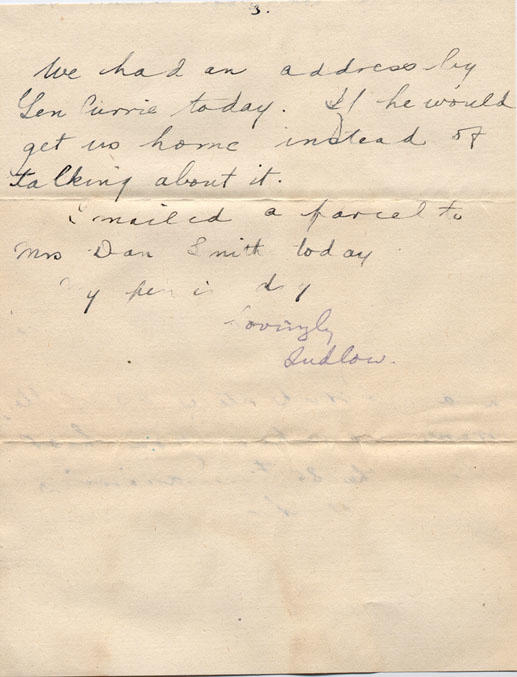 3.
We had an address by
Gen Currie today. If he would
get us home instead of
talking about it.
I mailed a parcel to
Mrs Dan Smith today
My pen is dry
Lovingly
Ludlow.